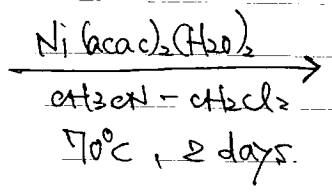 Ni(acac)₂(H₂O)₂
CH3CN - CH₂Cl₂
70°C, 2 days.